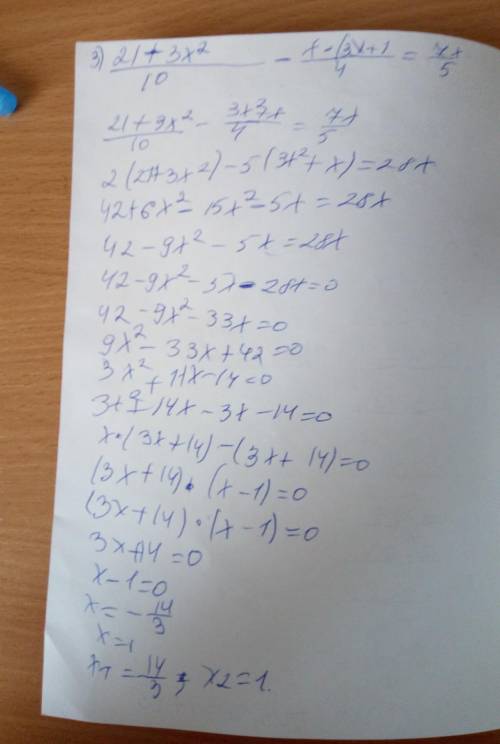 3) (21 + 3x²)/10 - (x · (3x + 1)/4 = 7x/5
(21 + 9x²)/10 - (3x² x)/4 = 7x/5
2(21+3x²) - 5(3x² + x) = 28x
42+6x² - 15x² - 5x = 28x
42 - 9x² - 5x = 28x
42 - 9x² - 5x - 28x = 0
42 - 9x² - 33x = 0
9x² - 33x + 42 = 0
3x² + 11x - 14 = 0
3x² + 14x - 3x - 14 = 0
x · (3x + 14) - (3x + 14) = 0
(3x + 14) · (x - 1) = 0
(3x + 14) · (x - 1) = 0
3x + 14 = 0
x - 1 = 0
x = - 14/3
x = 1
x1 = - 14/3 ; x2 = 1.